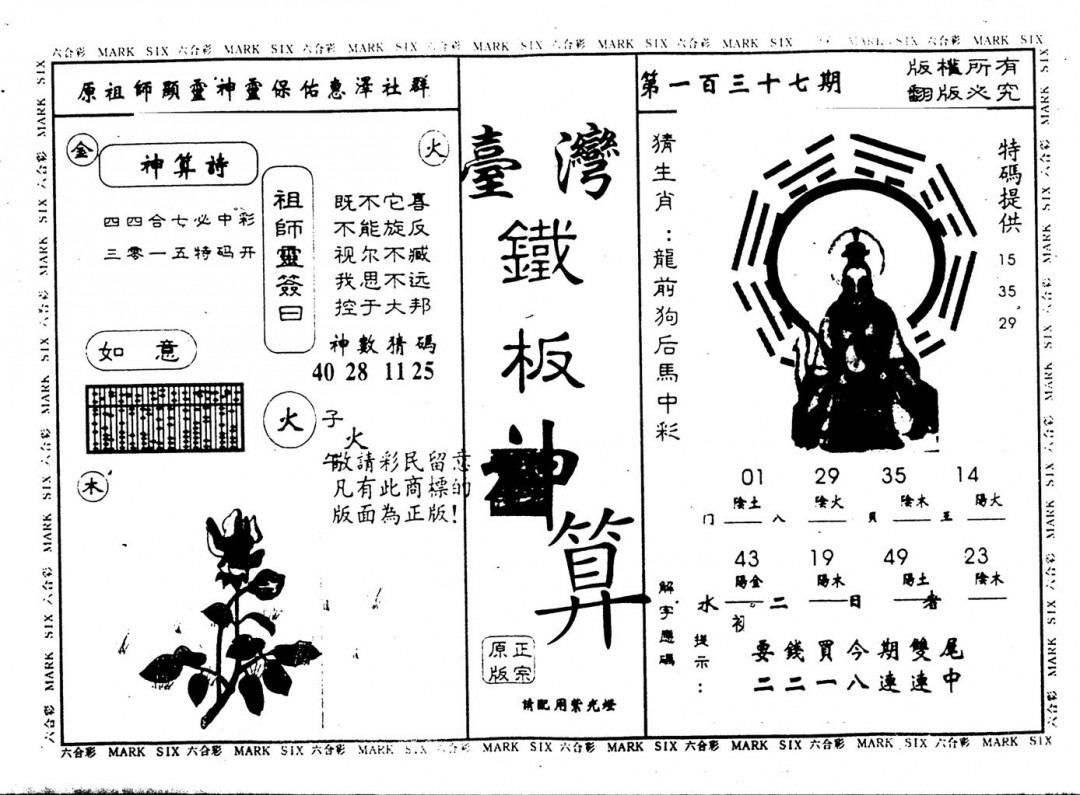 六合彩 MARK SIX 六合彩 MARK SIX 六合彩 MARK SIX 六合彩 MARK SIX 六合彩 MARK SIX 六合彩 MARK SIX MARK SIX 六合彩 MARK SIX
原祖師顯靈神靈保佑惠澤社群
金
神算詩
火
四四合七必中彩
三零一五特码开
祖師靈簽曰
既不它喜
不能旋反
视尔不臧
我思不远
控于大邦
神數猜碼
40 28 11 25
如意
火
子
火
午
敬請彩民留意
凡有此商標的
版面為正版!
木
臺灣
鐵
板
神
算
正宗
原版
請配用紫光燈
第一百三十七期
版權所有
翻版必究
猜生肖:龍前狗后馬中彩
特碼提供
15
35
29
01 29 35 14
陰土 陰火 陰木 陽火
门 八 貝 至
43 19 49 23
陽金 陽木 陽土 陰木
水 二 日 者
初
解字應碼
提示:
要錢買今期雙尾
二二一八連連中
六合彩 MARK SIX 六合彩 MARK SIX 六合彩 MARK SIX 六合彩 MARK SIX 六合彩 MARK SIX 六合彩 MARK SIX 六合彩 MARK SIX 六合彩 MARK SIX